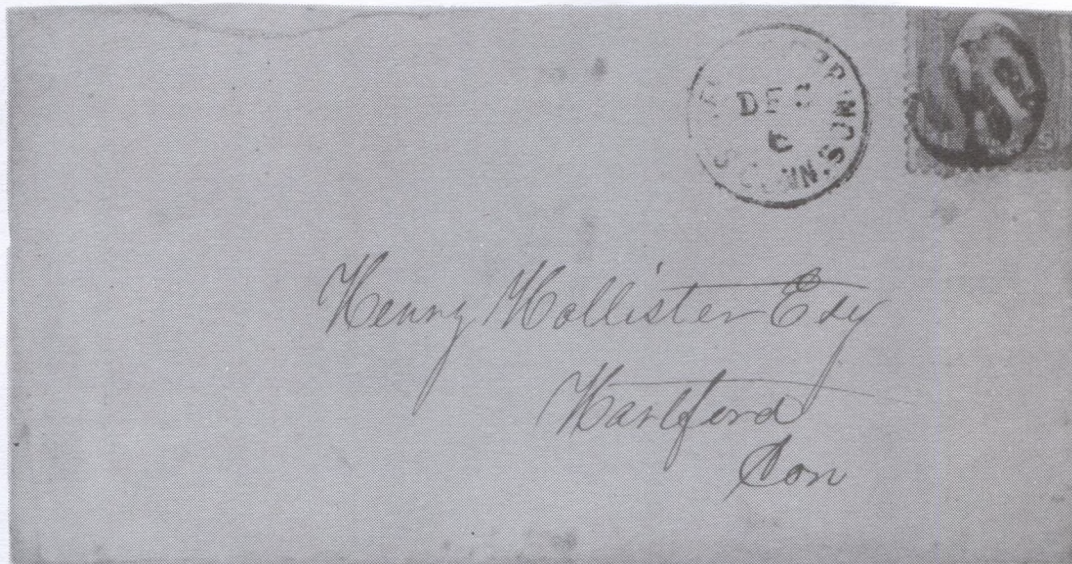 DEC
6
SPRINGS
CONN.
Henry Hollister Esq
Hartford
Con